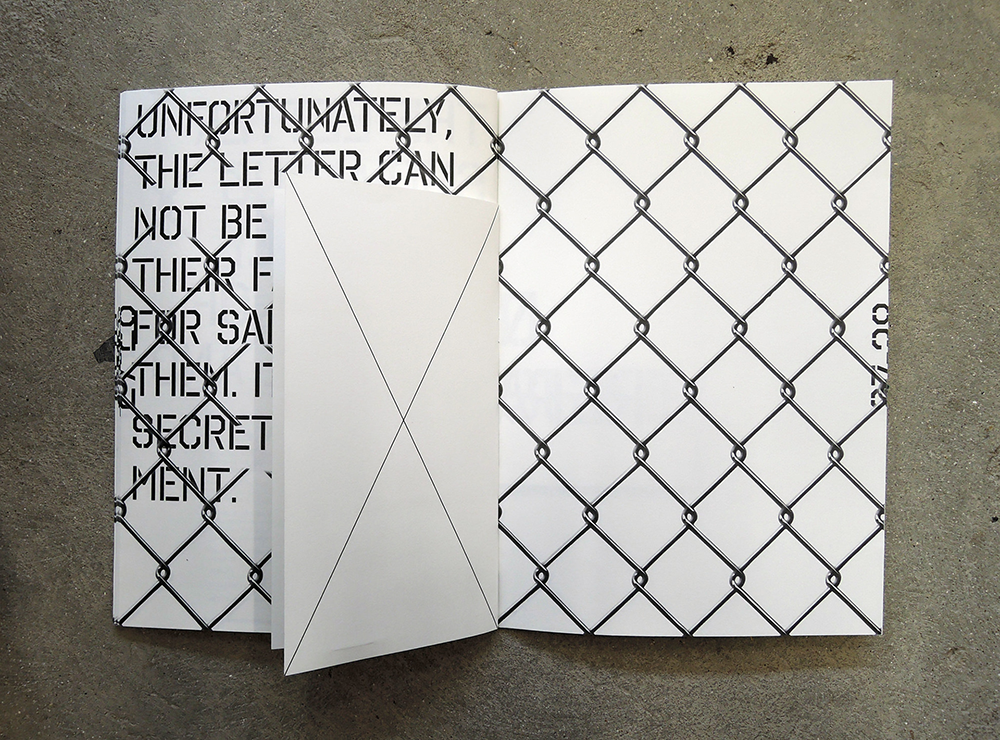 UNFORTUNATELY,
THE LETTER CAN
NOT BE
THEIR F
FOR SA
THEM. IT
SECRET
MENT.